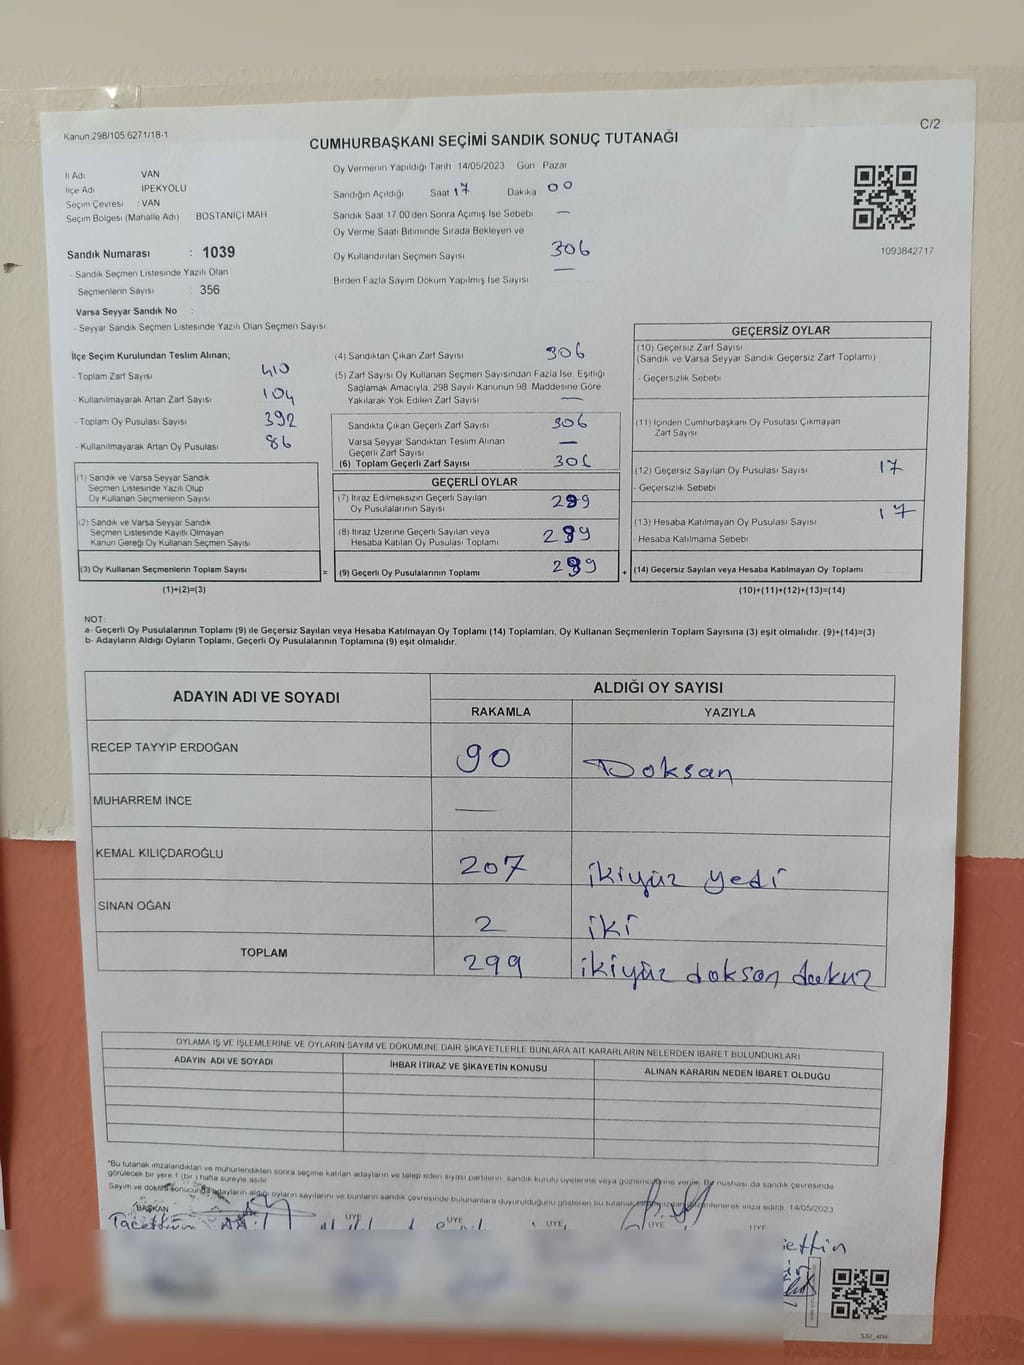 Kanun 298/105,6271/18-1
C/2
CUMHURBAŞKANI SEÇİMİ SANDIK SONUÇ TUTANAĞI
İl Adı VAN
İlçe Adı İPEKYOLU
Seçim Çevresi : VAN
Seçim Bölgesi (Mahalle Adı) BOSTANİÇİ MAH
Sandık Numarası : 1039
- Sandık Seçmen Listesinde Yazılı Olan
Seçmenlerin Sayısı : 356
Varsa Seyyar Sandık No :
- Seyyar Sandık Seçmen Listesinde Yazılı Olan Seçmen Sayısı
Oy Vermenin Yapıldığı Tarih 14/05/2023 Gün Pazar
Sandığın Açıldığı Saat 17 Dakika 00
Sandık Saat 17.00'den Sonra Açılmış İse Sebebi —
Oy Verme Saati Bitiminde Sırada Bekleyen ve
Oy Kullandırılan Seçmen Sayısı 306
Birden Fazla Sayım Döküm Yapılmış İse Sayısı —
1093842717
İlçe Seçim Kurulundan Teslim Alınan;
- Toplam Zarf Sayısı 410
- Kullanılmayarak Artan Zarf Sayısı 104
- Toplam Oy Pusulası Sayısı 392
- Kullanılmayarak Artan Oy Pusulası 86
(1) Sandık ve Varsa Seyyar Sandık
Seçmen Listesinde Yazılı Olup
Oy Kullanan Seçmenlerin Sayısı
(2) Sandık ve Varsa Seyyar Sandık
Seçmen Listesinde Kayıtlı Olmayan
Kanun Gereği Oy Kullanan Seçmen Sayısı
(3) Oy Kullanan Seçmenlerin Toplam Sayısı
=
(1)+(2)=(3)
(4) Sandıktan Çıkan Zarf Sayısı 306
(5) Zarf Sayısı Oy Kullanan Seçmen Sayısından Fazla İse, Eşitliği
Sağlamak Amacıyla, 298 Sayılı Kanunun 98. Maddesine Göre
Yakılarak Yok Edilen Zarf Sayısı —
Sandıkta Çıkan Geçerli Zarf Sayısı 306
Varsa Seyyar Sandıktan Teslim Alınan
Geçerli Zarf Sayısı —
(6) Toplam Geçerli Zarf Sayısı 306
GEÇERLİ OYLAR
(7) İtiraz Edilmeksizin Geçerli Sayılan
Oy Pusulalarının Sayısı 299
(8) İtiraz Üzerine Geçerli Sayılan veya
Hesaba Katılan Oy Pusulası Toplamı 299
(9) Geçerli Oy Pusulalarının Toplamı 299
+
GEÇERSİZ OYLAR
(10) Geçersiz Zarf Sayısı
(Sandık ve Varsa Seyyar Sandık Geçersiz Zarf Toplamı)
- Geçersizlik Sebebi
(11) İçinden Cumhurbaşkanı Oy Pusulası Çıkmayan
Zarf Sayısı
(12) Geçersiz Sayılan Oy Pusulası Sayısı 17
- Geçersizlik Sebebi
(13) Hesaba Katılmayan Oy Pusulası Sayısı 17
- Hesaba Katılmama Sebebi
(14) Geçersiz Sayılan veya Hesaba Katılmayan Oy Toplamı
(10)+(11)+(12)+(13)=(14)
NOT:
a- Geçerli Oy Pusulalarının Toplamı (9) ile Geçersiz Sayılan veya Hesaba Katılmayan Oy Toplamı (14) Toplamları, Oy Kullanan Seçmenlerin Toplam Sayısına (3) eşit olmalıdır. (9)+(14)=(3)
b- Adayların Aldığı Oyların Toplamı, Geçerli Oy Pusulalarının Toplamına (9) eşit olmalıdır.
ADAYIN ADI VE SOYADI ALDIĞI OY SAYISI
RAKAMLA YAZIYLA
RECEP TAYYIP ERDOĞAN 90 Doksan
MUHARREM İNCE —
KEMAL KILIÇDAROĞLU 207 ikiyüz yedi
SİNAN OĞAN 2 iki
TOPLAM 299 ikiyüz doksan dokuz
OYLAMA İŞ VE İŞLEMLERİNE VE OYLARIN SAYIM VE DÖKÜMÜNE DAİR ŞİKAYETLERLE BUNLARA AİT KARARLARIN NELERDEN İBARET BULUNDUKLARI
ADAYIN ADI VE SOYADI İHBAR İTİRAZ VE ŞİKAYETİN KONUSU ALINAN KARARIN NEDEN İBARET OLDUĞU
*Bu tutanak imzalandıktan ve mühürlendikten sonra seçime katılan adayların ve talep eden siyasi partilerin sandık kurulu üyelerine veya gözlemcilerine verilir. Bir nüshası da sandık çevresinde
görülecek bir yere 1 (bir) hafta süreyle asılır
Sayım ve döküm sonucunda adayların aldığı oyların sayılarını ve bunların sandık çevresinde bulunanlara duyurulduğunu gösteren bu tutanak düzenlenerek imza edildi. 14/05/2023
BAŞKAN ÜYE ÜYE ÜYE ÜYE ÜYE
Tacettin
ettin
SSI_406